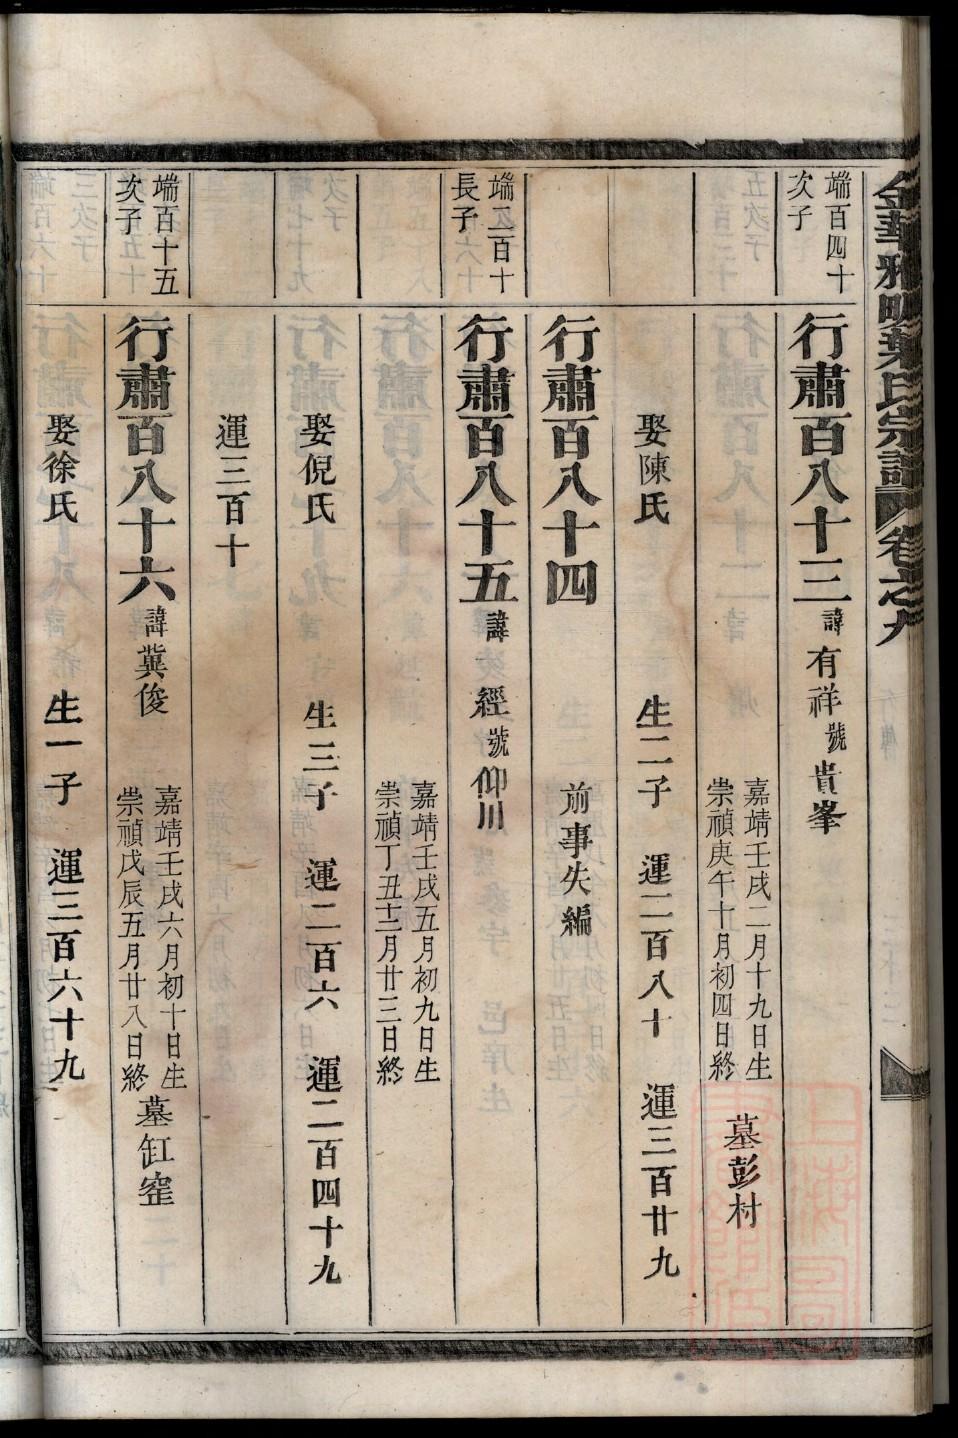 金華雅畈葉氏宗譜 卷之九
端百四十
次子
行肅百八十三 諱有祥號貴峯
嘉靖壬戌二月十九日生
崇禎庚午十月初四日終
墓彭村
娶陳氏 生二子 運二百八十 運三百廿九
行肅百八十四 前事失編
端二百十
長子
行肅百八十五 諱經號仰川
嘉靖壬戌五月初九日生
崇禎丁丑十二月廿三日終
娶倪氏 生三子 運二百六 運二百四十九
運三百十
端百十五
次子
行肅百八十六 諱冀俊
嘉靖壬戌六月初十日生
崇禎戊辰五月廿八日終
墓缸窑
娶徐氏 生一子 運三百六十九